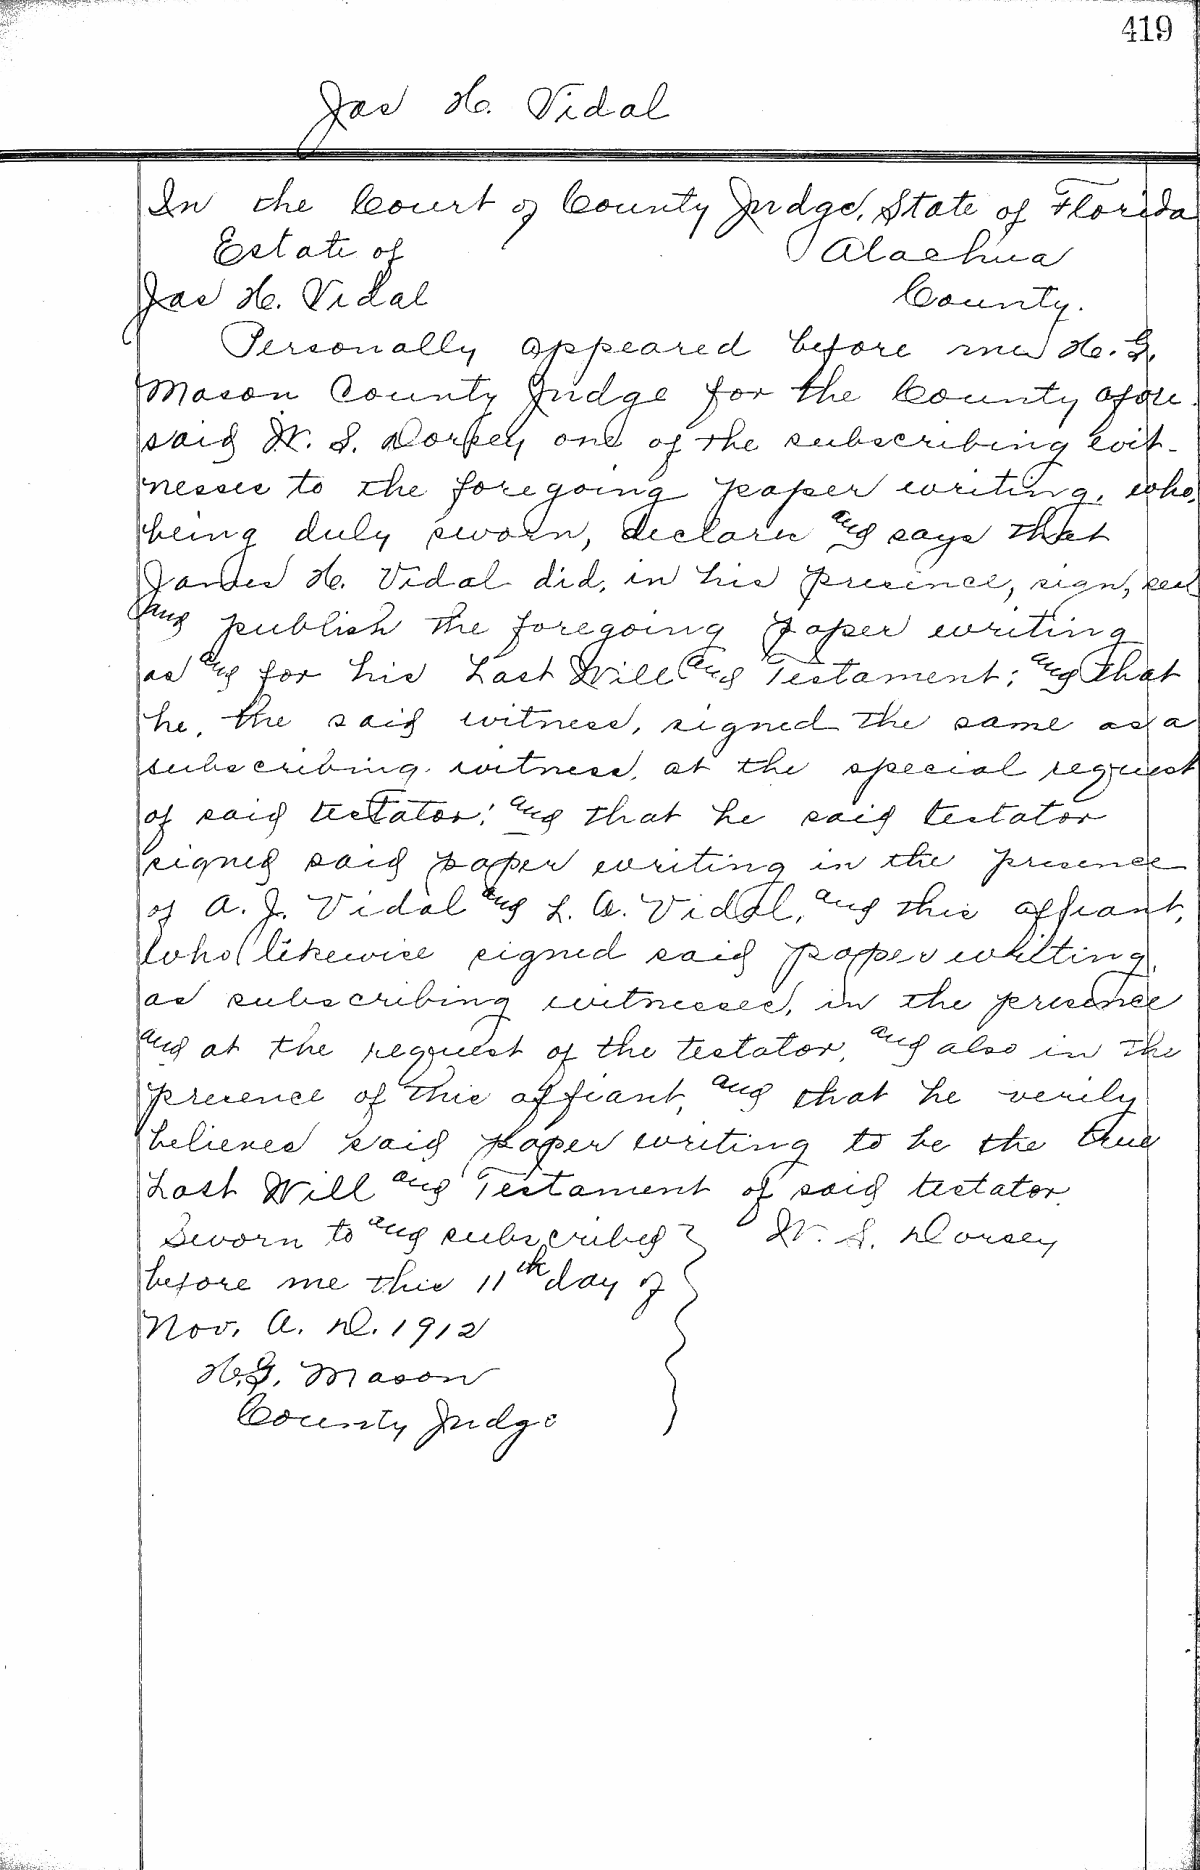 419
Jas H. Vidal
In the Court of County Judge, State of Florida
Estate of Alachua
Jas H. Vidal County.
Personally appeared before me H. G.
Mason County Judge for the County afore-
said W. S. Dorsey one of the subscribing wit-
nesses to the foregoing paper writing, who,
being duly sworn, declares and says that
James H. Vidal did, in his presence, sign, seal
and publish the foregoing paper writing
as and for his Last Will and Testament; and that
he, the said witness, signed the same as a
subscribing witness, at the special request
of said testator; and that he said testator
signed said paper writing in the presence
of A. J. Vidal and L. A. Vidal, and this affiant,
who likewise signed said paper writing,
as subscribing witnesses, in the presence
and at the request of the testator, and also in the
presence of this affiant, and that he verily
believes said paper writing to be the true
Last Will and Testament of said testator.
Sworn to and subscribed W. S. Dorsey
before me this 11th day of
Nov. A. D. 1912
H. G. Mason
County Judge